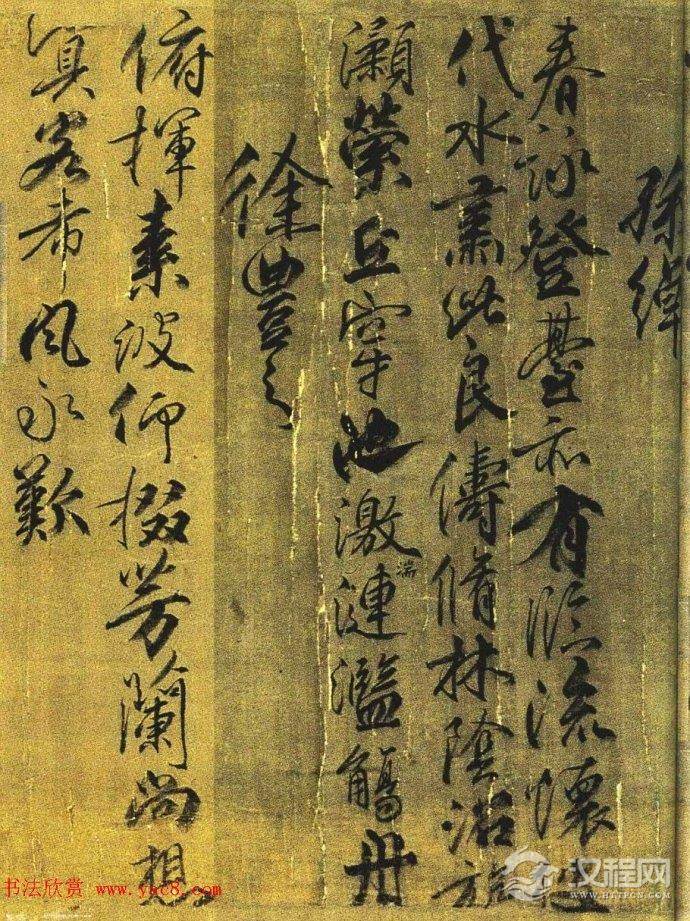 孫綽
春詠登臺亦有臨流懷
代水肅此良儔脩林陰沼旋
瀨縈丘穿池激湍漣濫觴舟
徐豊之
俯揮素波仰掇芳蘭尚想
冥客希風永歎
书法欣赏 www.yac8.com
汉程网
HTTPCN.COM